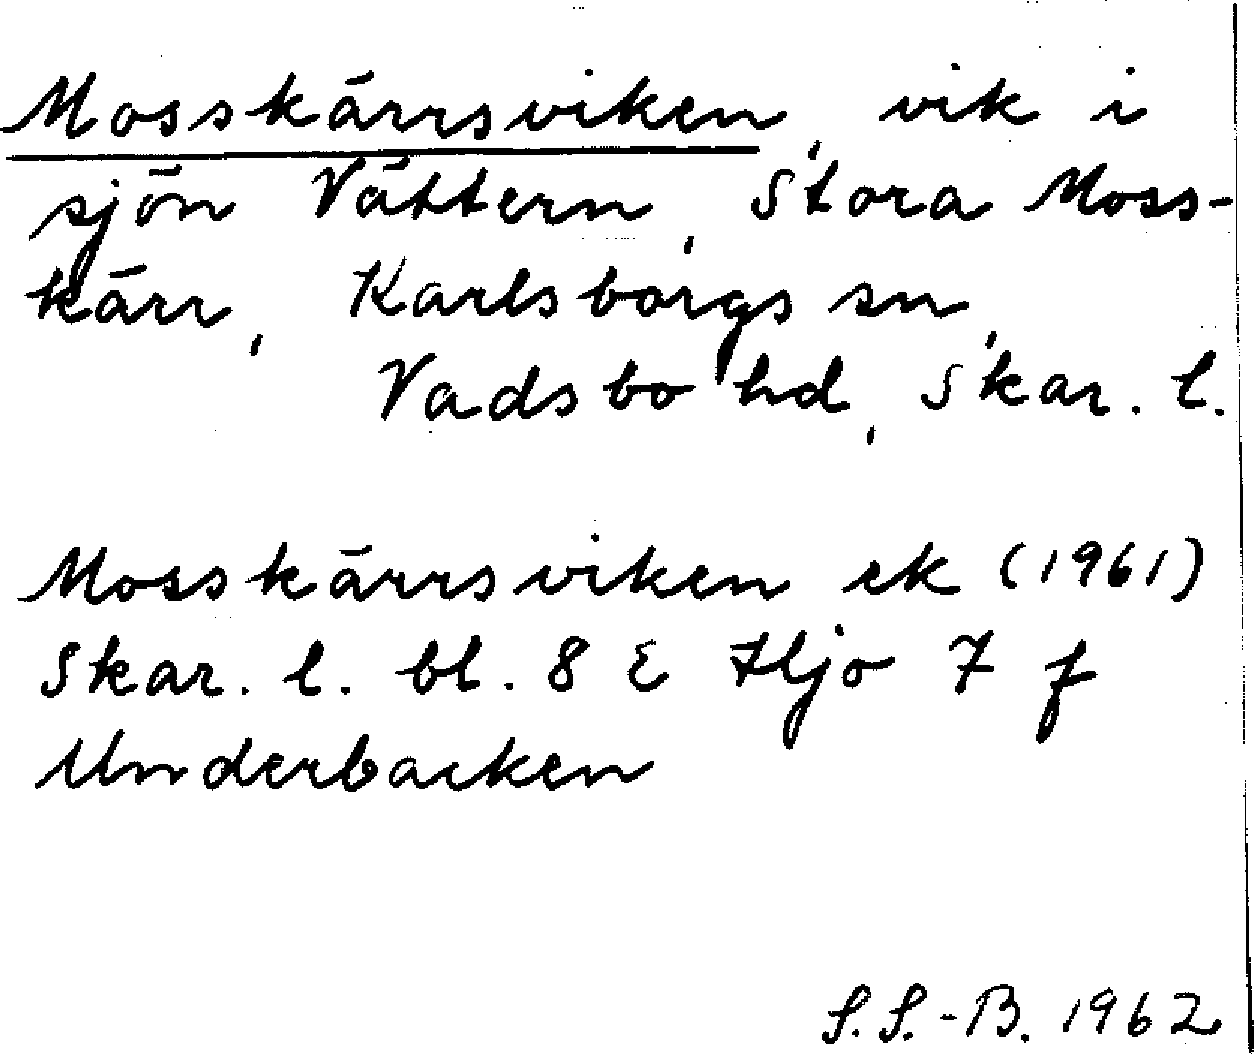 Mosskärrsviken, vik i
sjön Vättern, Stora Moss-
kärr, Karlsborgs sn,
Vadsbo hd, Skar. l.
Mosskärrsviken ek (1961)
Skar. l. bl. 8 E Hjo 7 f
Underbacken
S.S.-B. 1962